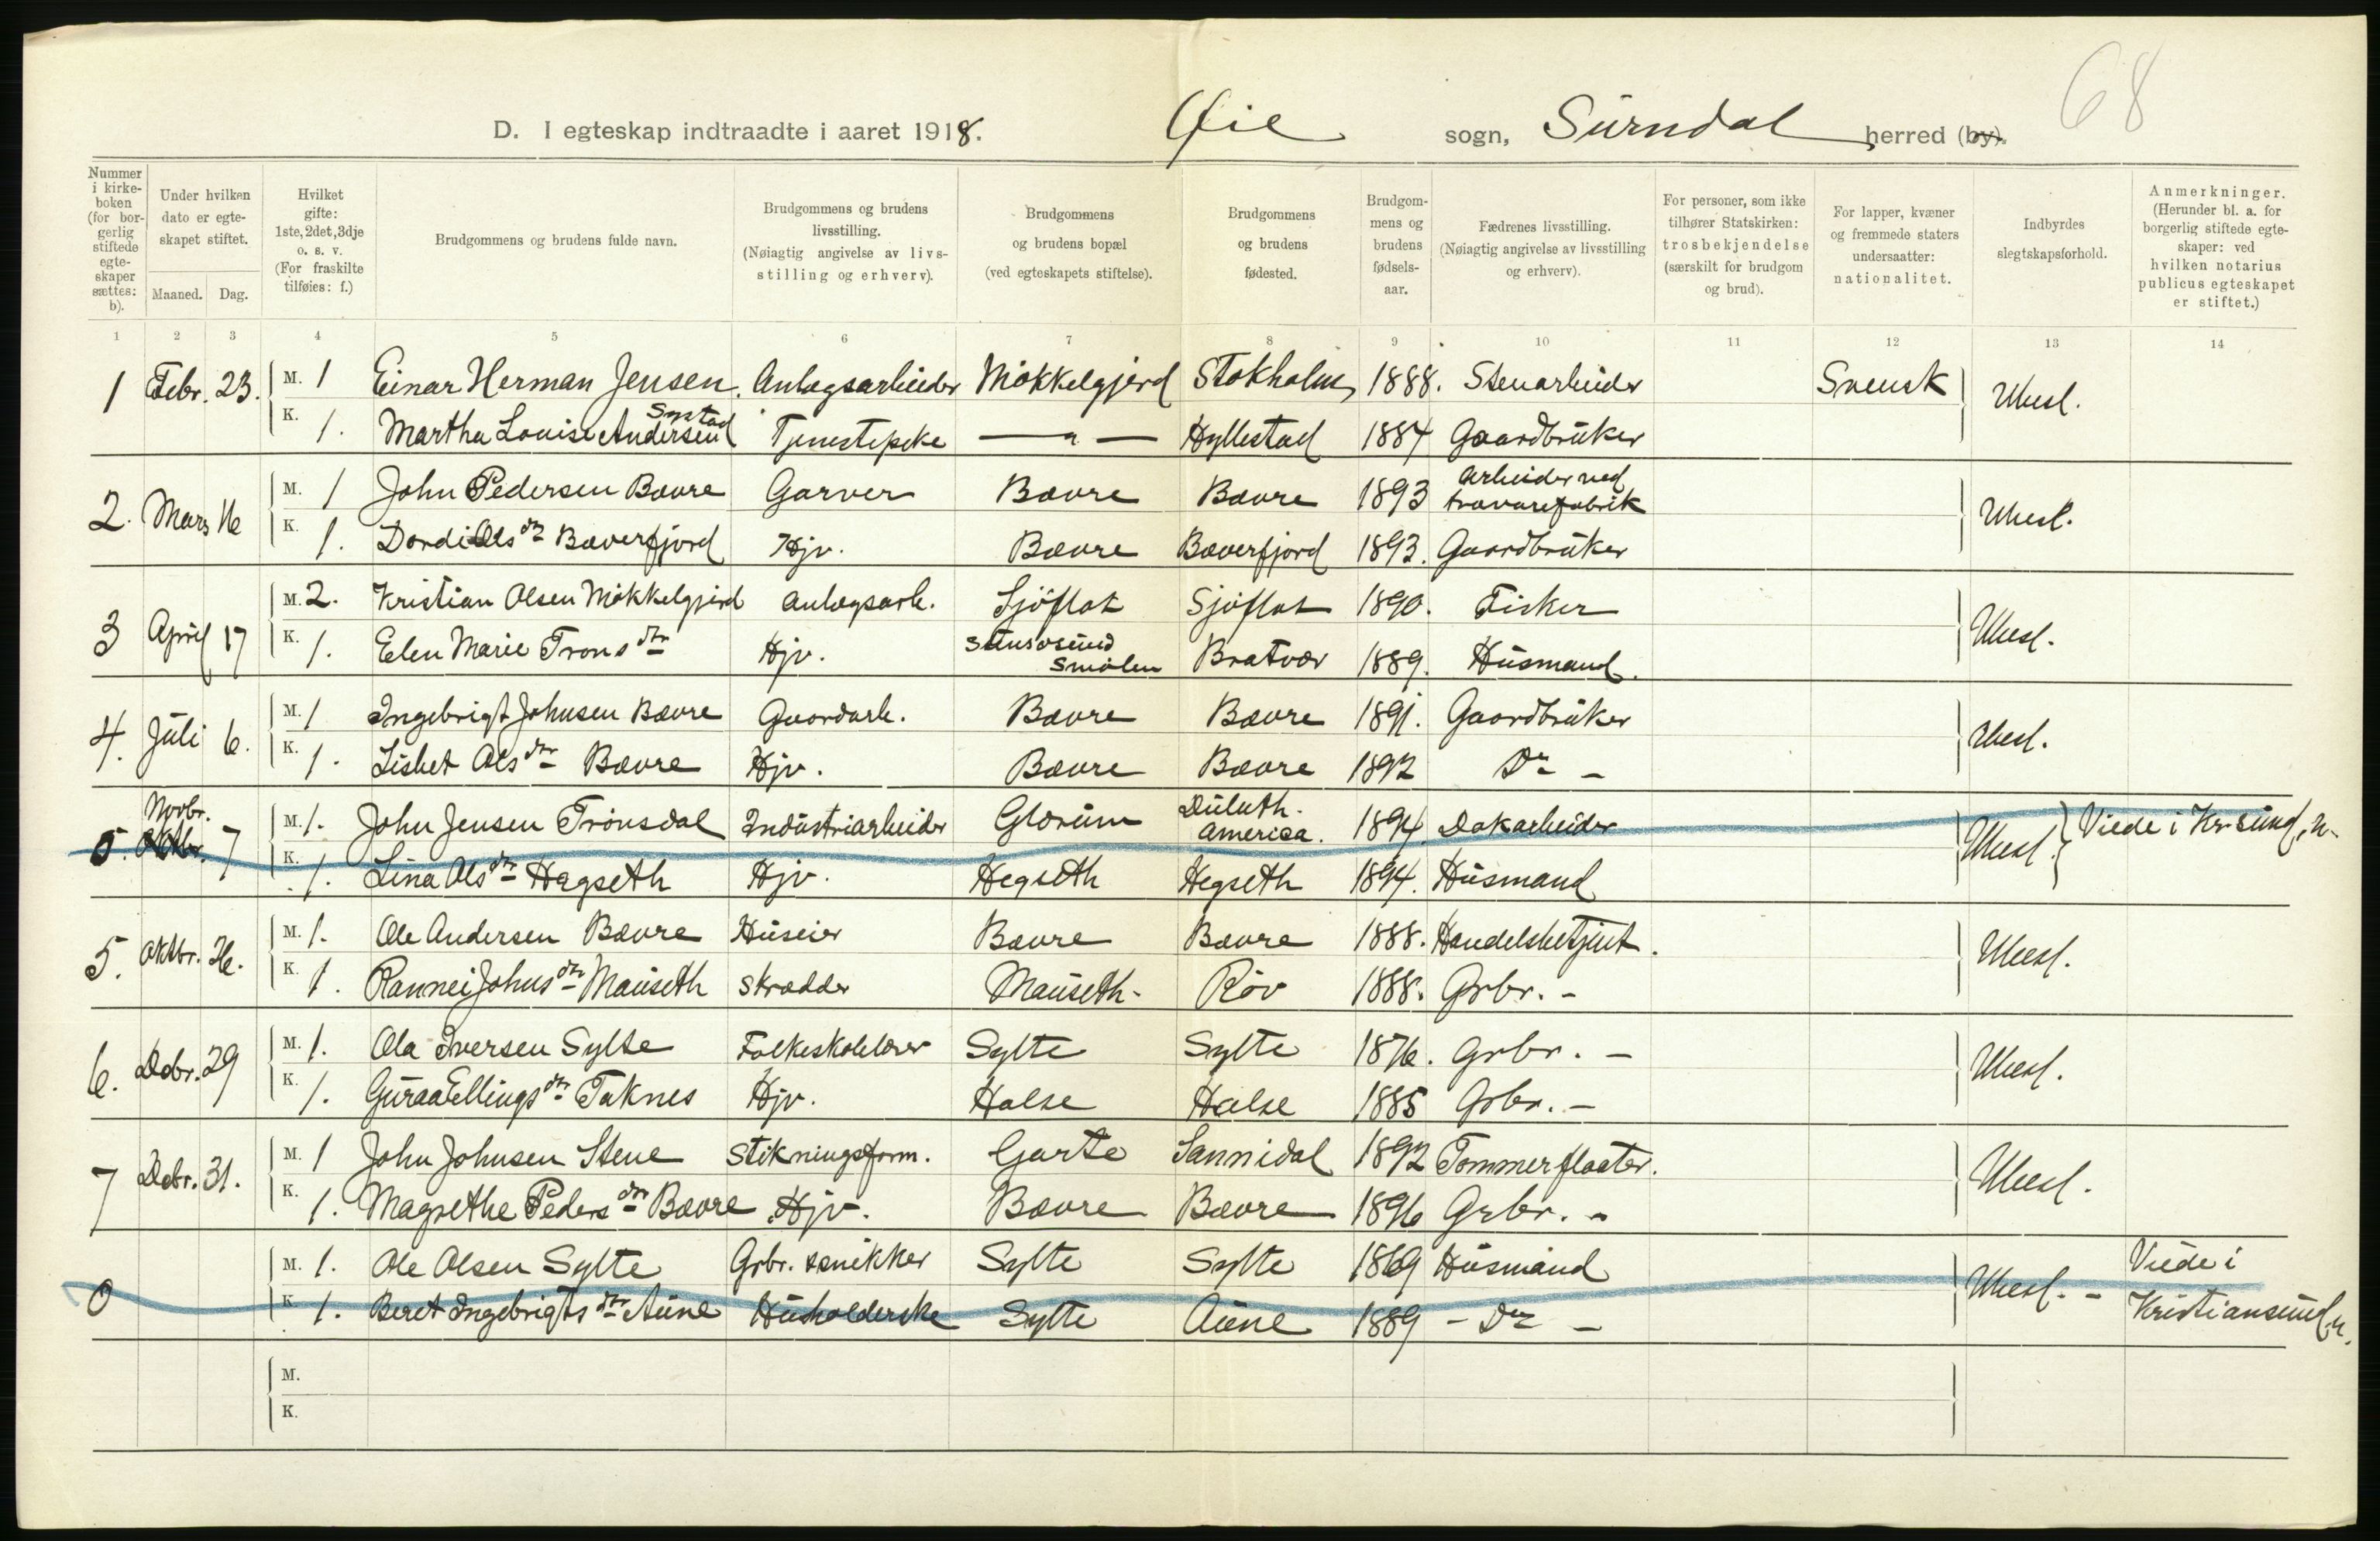 68
D. I egteskap indtraadte i aaret 1918. Øie sogn, Surndal herred (by).
Nummer i kirkeboken (for borgerlig stiftede egteskaper sættes: b).
Under hvilken dato er egteskapet stiftet.
Maaned. Dag.
Hvilket gifte: 1ste, 2det, 3dje o. s. v. (For fraskilte tilføies: f.)
Brudgommens og brudens fulde navn.
Brudgommens og brudens livsstilling. (Nøiagtig angivelse av livsstilling og erhverv).
Brudgommens og brudens bopæl (ved egteskapets stiftelse).
Brudgommens og brudens fødested.
Brudgommens og brudens fødselsaar.
Fædrenes livsstilling. (Nøiagtig angivelse av livsstilling og erhverv).
For personer, som ikke tilhører Statskirken: trosbekjendelse (særskilt for brudgom og brud).
For lapper, kvæner og fremmede staters undersaatter: nationalitet.
Indbyrdes slegtskapsforhold.
Anmerkninger. (Herunder bl. a. for borgerlig stiftede egteskaper: ved hvilken notarius publicus egteskapet er stiftet.)
1 2 3 4 5 6 7 8 9 10 11 12 13 14
1 Febr. 23. M. 1 Einar Herman Jensen. Anlægsarbeider Møkkelgjerd Stokholm 1888. Stenarbeider Svensk Ubesl.
K. 1. Martha Louise Andersend Systad Tjenestepike — " — Hyllestad 1884 Gaardbruker
2. Mars 16 M. 1 John Pedersen Bævre Garver Bævre Bævre 1893 Arbeider ved trævarefabrik Ubesl.
K. 1. Dordi Olsdtr Bæverfjord Hjv. Bævre Bæverfjord 1893. Gaardbruker
3 April 17 M. 2. Kristian Olsen Møkkelgjerd Anlægsarb. Sjøflot Sjøflot 1890. Fisker Ubesl.
K. 1. Elen Marie Tronsdtr Hjv. Smølen Bratvær 1889. Husmand.
4. Juli 6. M. 1 Ingebrigt Johnsen Bævre Gaardarb. Bævre Bævre 1891. Gaardbruker Ubesl.
K. 1. Lisbet Olsdtr Bævre Hjv. Bævre Bævre 1892 Do –
5. Novbr. Oktbr. 7 M. 1. John Jensen Trønsdal Industriarbeider Glærum Duluth. America. 1894. Dokarbeider Ubesl. Viede i Kr.sund, n.
K. 1. Lina Olsdtr Hegseth Hjv. Hegseth Hegseth 1894. Husmand
5. Oktbr. 26. M. 1. Ole Andersen Bævre Huseier Bævre Bævre 1888. Handelsbetjent. Ubesl.
K. 1. Rannei Johnsdtr Mauseth Skrædder Mauseth Røv 1888. Grbr. –
6. Debr. 29 M. 1. Ola Iversen Sylte Folkeskolelærer Sylte Sylte 1876. Grbr. – Ubesl.
K. 1. Guraa Ellingsdtr Taknes Hjv. Halse Halse 1885 Grbr. –
7 Debr. 31. M. 1 John Johnsen Stene Stikningsform. Garte Sannidal 1892 Tømmerfløater. Ubesl.
K. 1. Magrethe Pedersdtr Bævre Hjv. Bævre Bævre 1896 Grbr. –
0 M. 1. Ole Olsen Sylte Grbr. snikker Sylte Sylte 1869 Husmand Ubesl. – Viede i Kristiansund, n.
K. 1. Beret Ingebrigtsdtr Aune Husholderske Sylte Aune 1889 – Do –
M.
K.